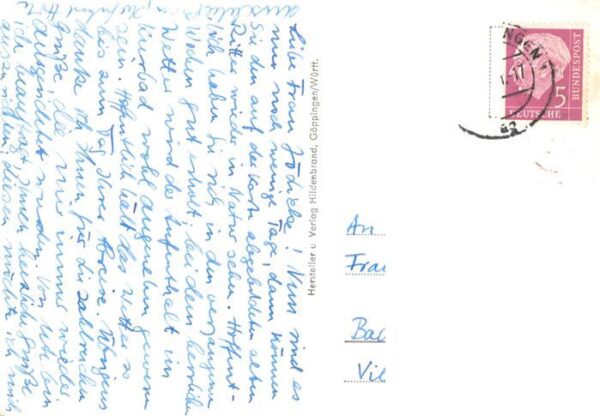 Liebe Frau ! Nun sind es
nur noch wenige Tage, dann können
Sie den auf der Karte abgebildeten alten
wieder in Natur sehen. Hoffent-
lich haben Sie sich in den vergangenen
Wochen gut erholt, bei dem herrlichen
Wetter wird der Aufenthalt in
wohl angenehm gewesen
sein. Hoffentlich hält das Wetter so
bis zum Tag Ihrer Abreise. Übrigens
danke ich Ihnen für die zahlreichen
Grüße, die mir immer wieder
ausgerichtet wurden. Von
ich Ihnen herzliche Grüße
diesen möchte ich mich
Hersteller u. Verlag Hildenbrand, Göppingen/Württ.
NGEN
DEUTSCHE
BUNDESPOST
5
An
Frau
Bad
Vie